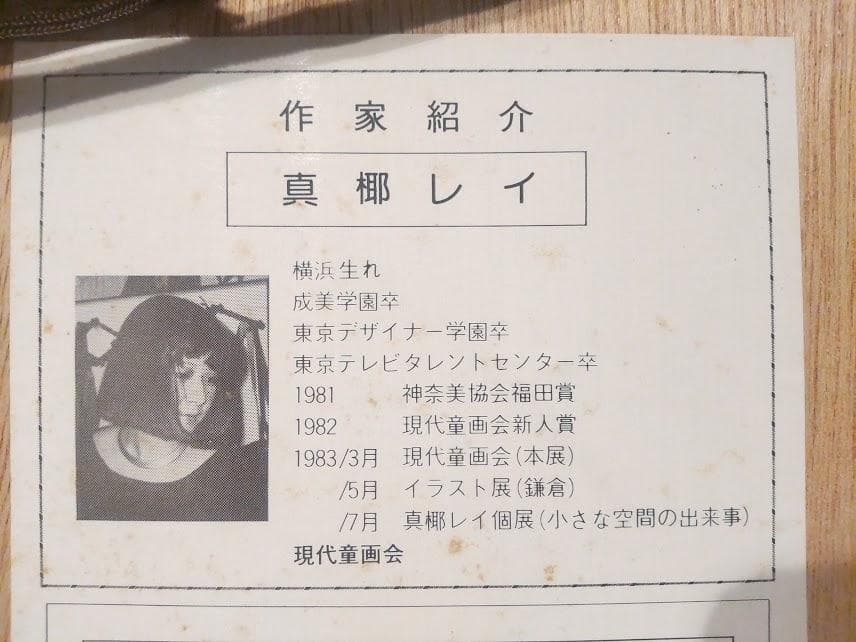 作家紹介
真椰レイ
横浜生れ
成美学園卒
東京デザイナー学園卒
東京テレビタレントセンター卒
1981 神奈美協会福田賞
1982 現代童画会新人賞
1983/3月 現代童画会(本展)
/5月 イラスト展(鎌倉)
/7月 真椰レイ個展(小さな空間の出来事)
現代童画会